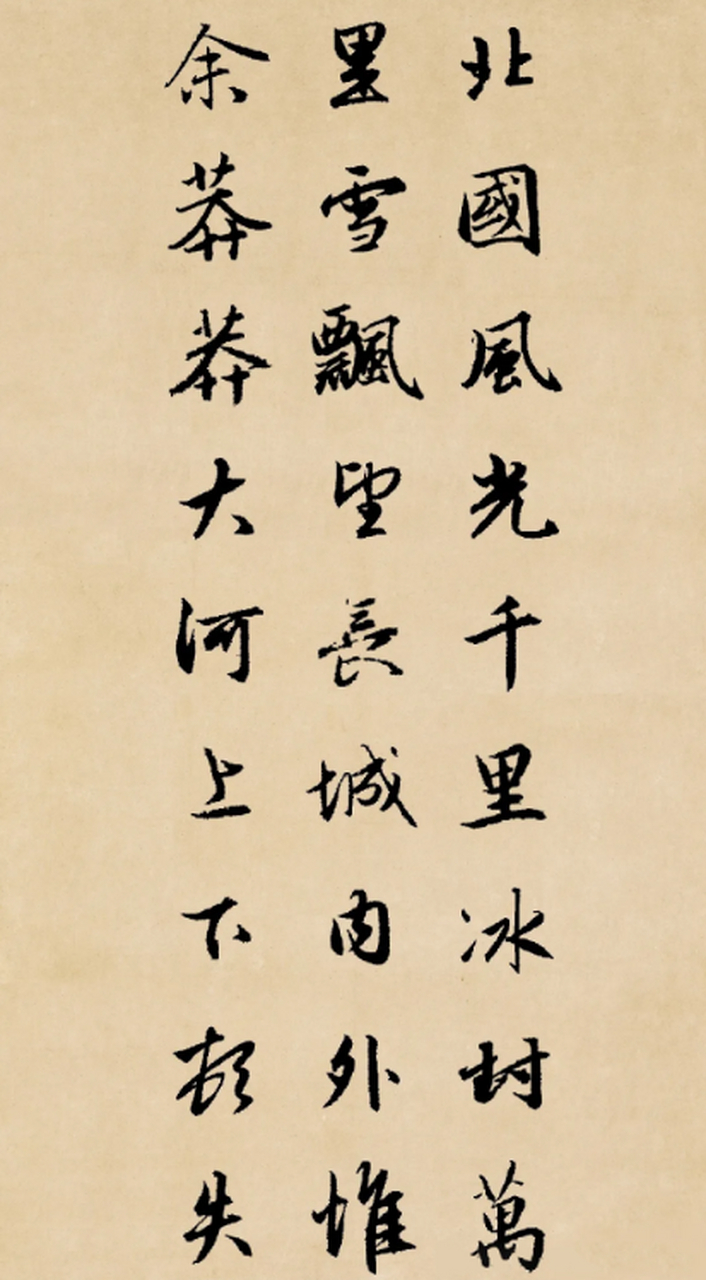 北國風光千里冰封萬
里雪飄望長城内外惟
余莽莽大河上下頓失